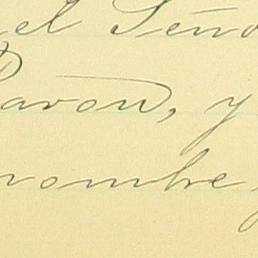 el Seño
Pavon, y
nombre